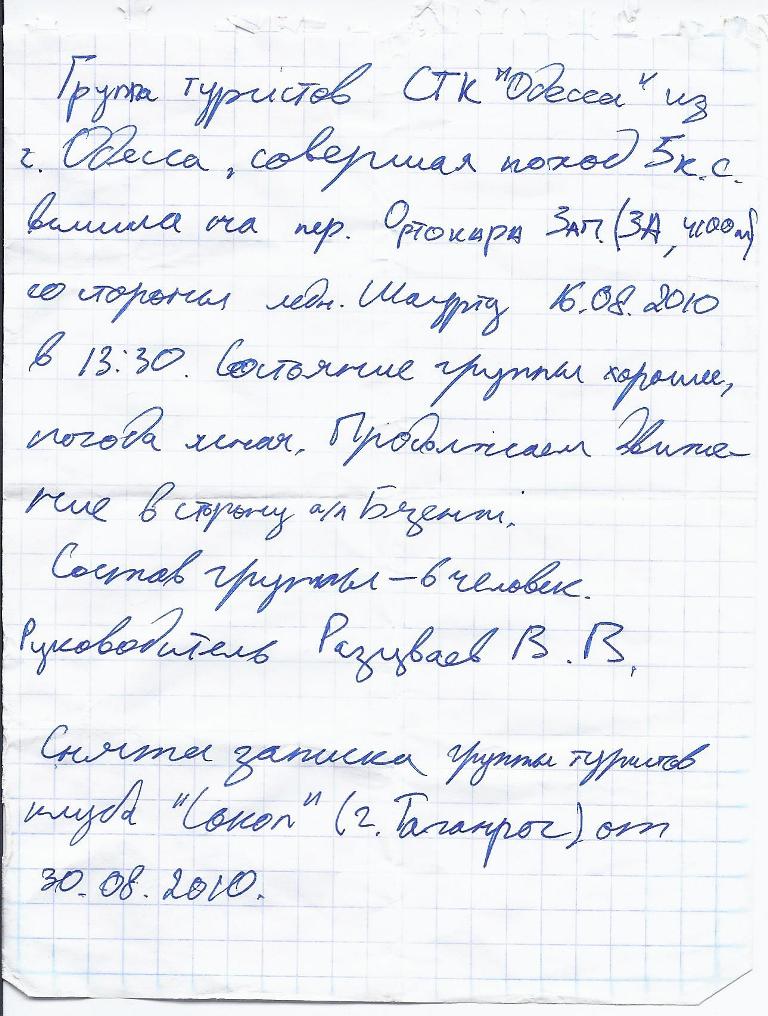 Группа туристов СТК "Одесса" из
г. Одесса, совершая поход 5 к.с.
вышла на пер. Ортокара Зап. (3А, 4100м)
со стороны ледн. Шаурту 16.08.2010
в 13:30. Состояние группы хорошее,
погода ясная. Продолжаем движе-
ние в сторону а/л Безенги.
Состав группы – 6 человек.
Руководитель Разуваев В.В.
Снята записка группы туристов
клуба "Сокол" (г. Таганрог) от
30.08.2010.